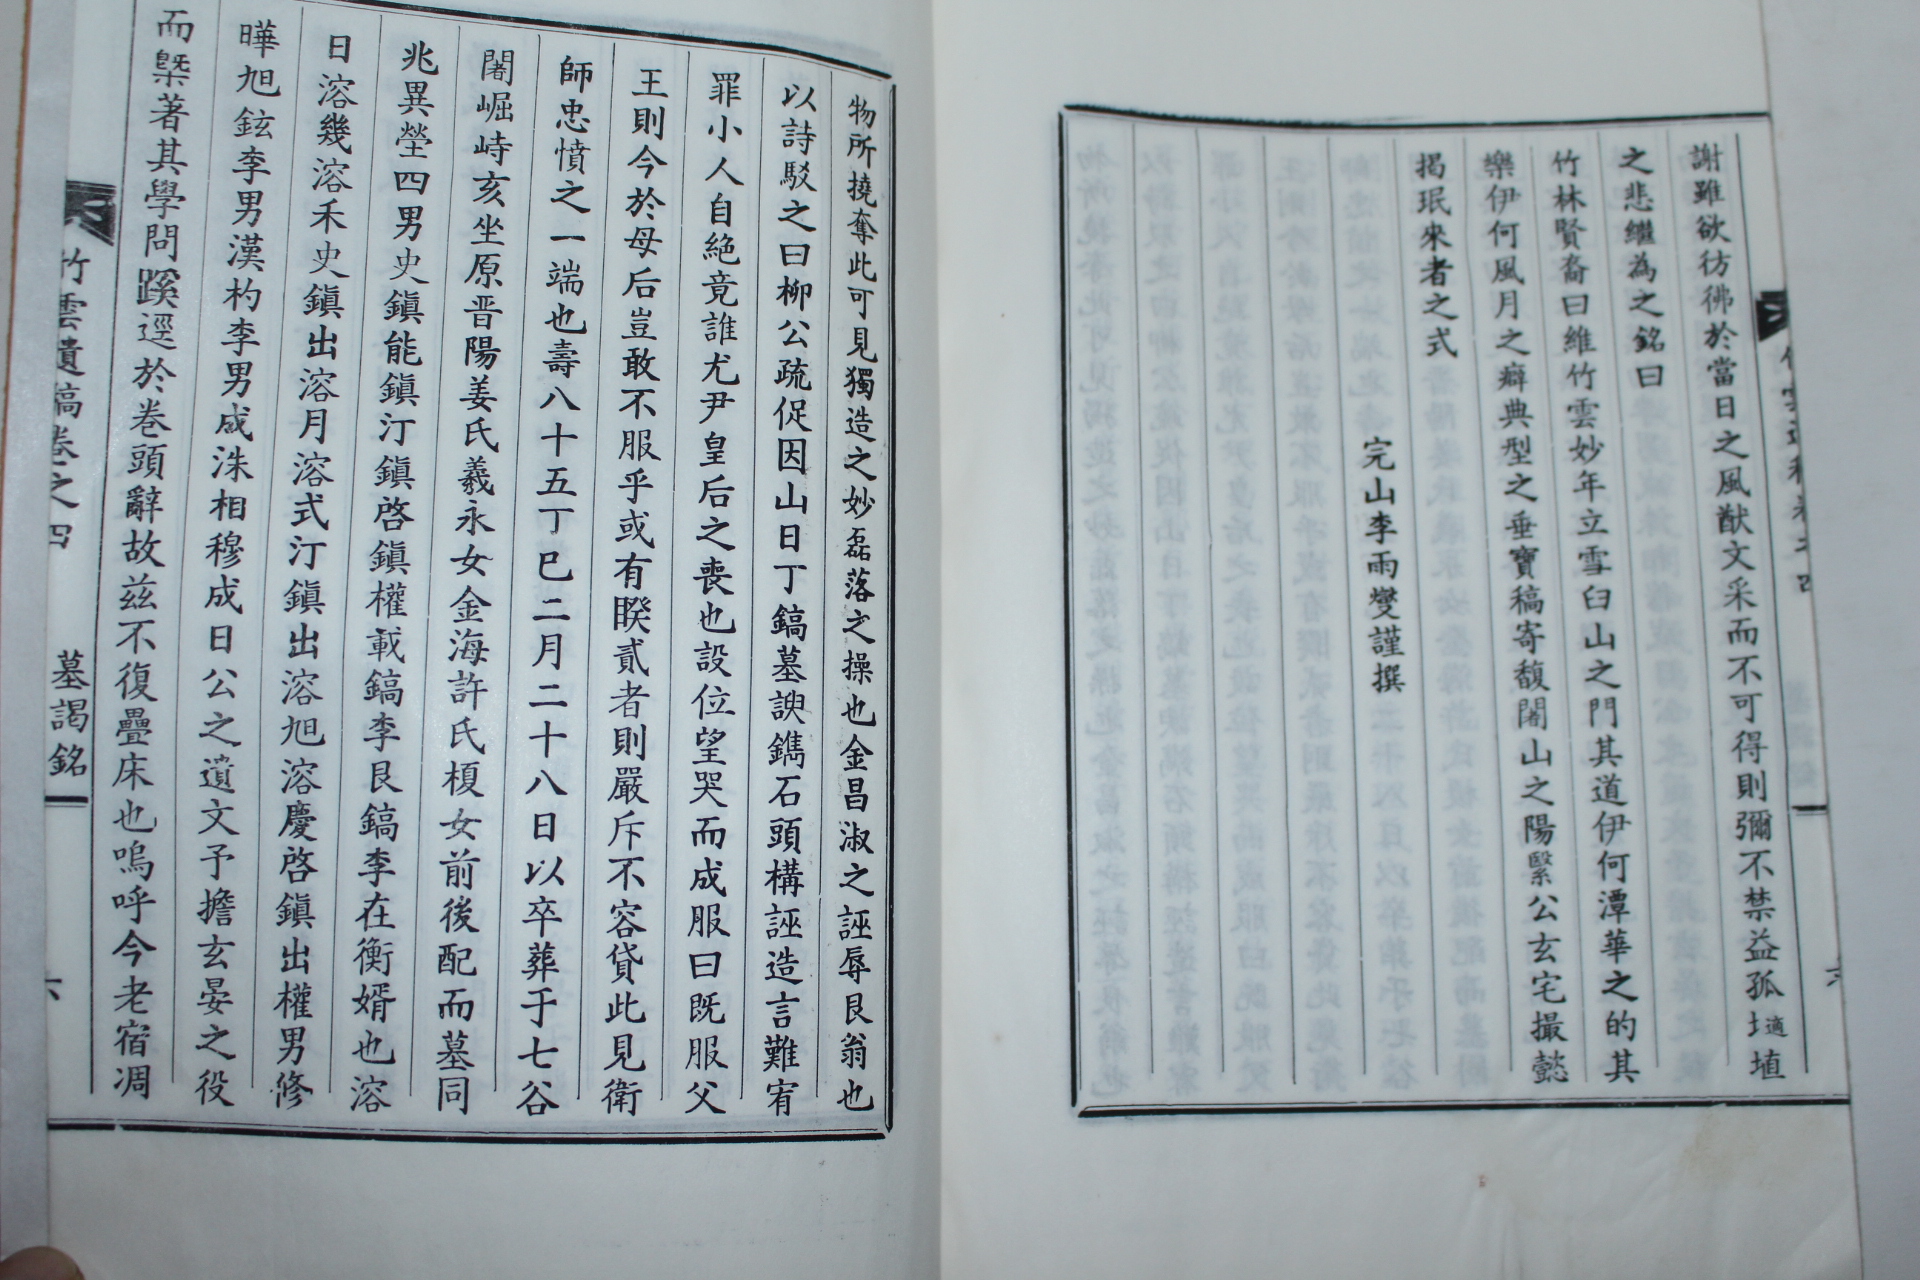 謝雖欲彷彿於當日之風猷文采而不可得則彌不禁益孤土適埴
之悲繼為之銘曰
竹林賢裔曰維竹雲妙年立雪臼山之門其道伊何潭華之的其
樂伊何風月之癖典型之垂寶稿寄馥闍山之陽繄公玄宅撮懿
揭珉來者之式
完山李雨燮謹撰
物所撓奪此可見獨造之妙磊落之操也金昌淑之誣辱艮翁也
以詩駁之曰柳公疏促因山日丁鎬墓諛鐫石頭構誣造言難宥
罪小人自絶竟誰尤尹皇后之喪也設位望哭而成服曰既服父
王則今於母后豈敢不服乎或有睽貳者則嚴斥不容貸此見衛
師忠憤之一端也壽八十五丁巳二月二十八日以卒葬于七谷
闍崛峙亥坐原晋陽姜氏羲永女金海許氏榎女前後配而墓同
兆異塋四男史鎭能鎭汀鎭啓鎭權載鎬李艮鎬李在衡婿也溶
日溶幾溶禾史鎭出溶月溶式汀鎭出溶旭溶慶啓鎭出權男修
曄旭鉉李男漢杓李男成洙相穆成日公之遺文予擔玄晏之役
而槩著其學問蹊逕於卷頭辭故茲不復疊床也嗚呼今老宿凋
竹雲遺稿卷之四
墓謁銘
六